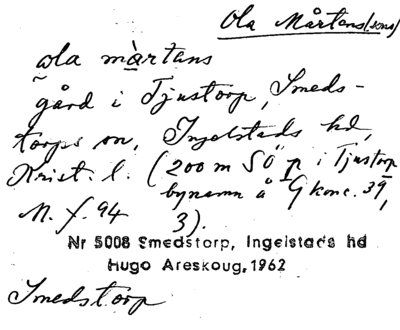 Ola Mårtens(sons)
ola màrtans
gård i Tjustorp, Smeds-
torps sn, Ingelstads hd,
Krist. l. (200 m SÖ p i Tjustorp
bynamn å Gkonc. 39,
M. f. 94 3).
Nr 5008 Smedstorp, Ingelstads hd
Hugo Areskoug, 1962
Smedstorp